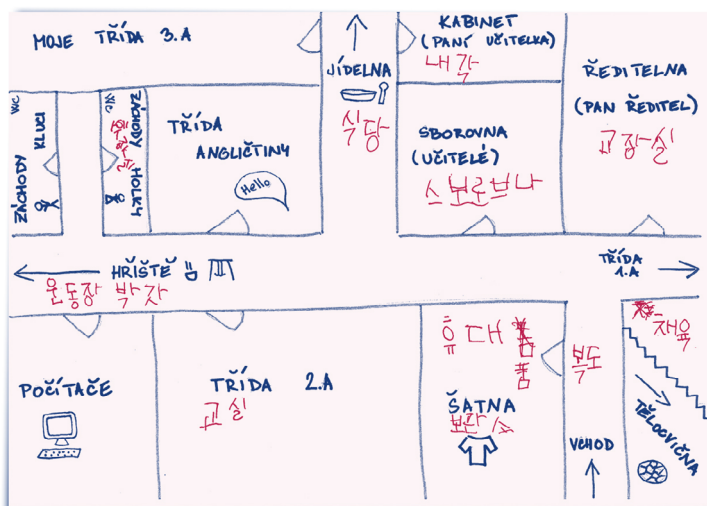 MOJE TŘÍDA 3.A
JÍDELNA
식당
KABINET
(PANÍ UČITELKA)
내각
ŘEDITELNA
(PAN ŘEDITEL)
교장실
WC
ZÁCHODY KLUCI
WC
ZÁCHODY HOLKY
TŘÍDA
ANGLIČTINY
Hello
SBOROVNA
(UČITELÉ)
스보로브나
HŘIŠTĚ
운동장 박자
TŘÍDA
1.A
POČÍTAČE
TŘÍDA 2.A
교실
휴대품
ŠATNA
보관소
복도
VCHOD
체육
TĚLOCVIČNA